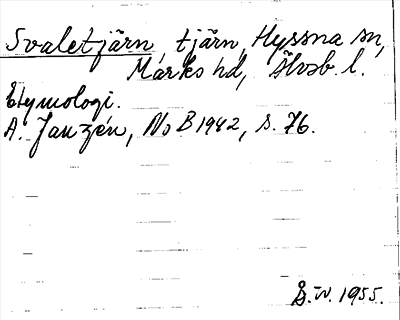 Svaletjärn, tjärn, Hyssna sn,
Marks hd, Älvsb. l.
Etymologi.
A. Janzén, NoB 1942, s. 76.
S.W. 1955.